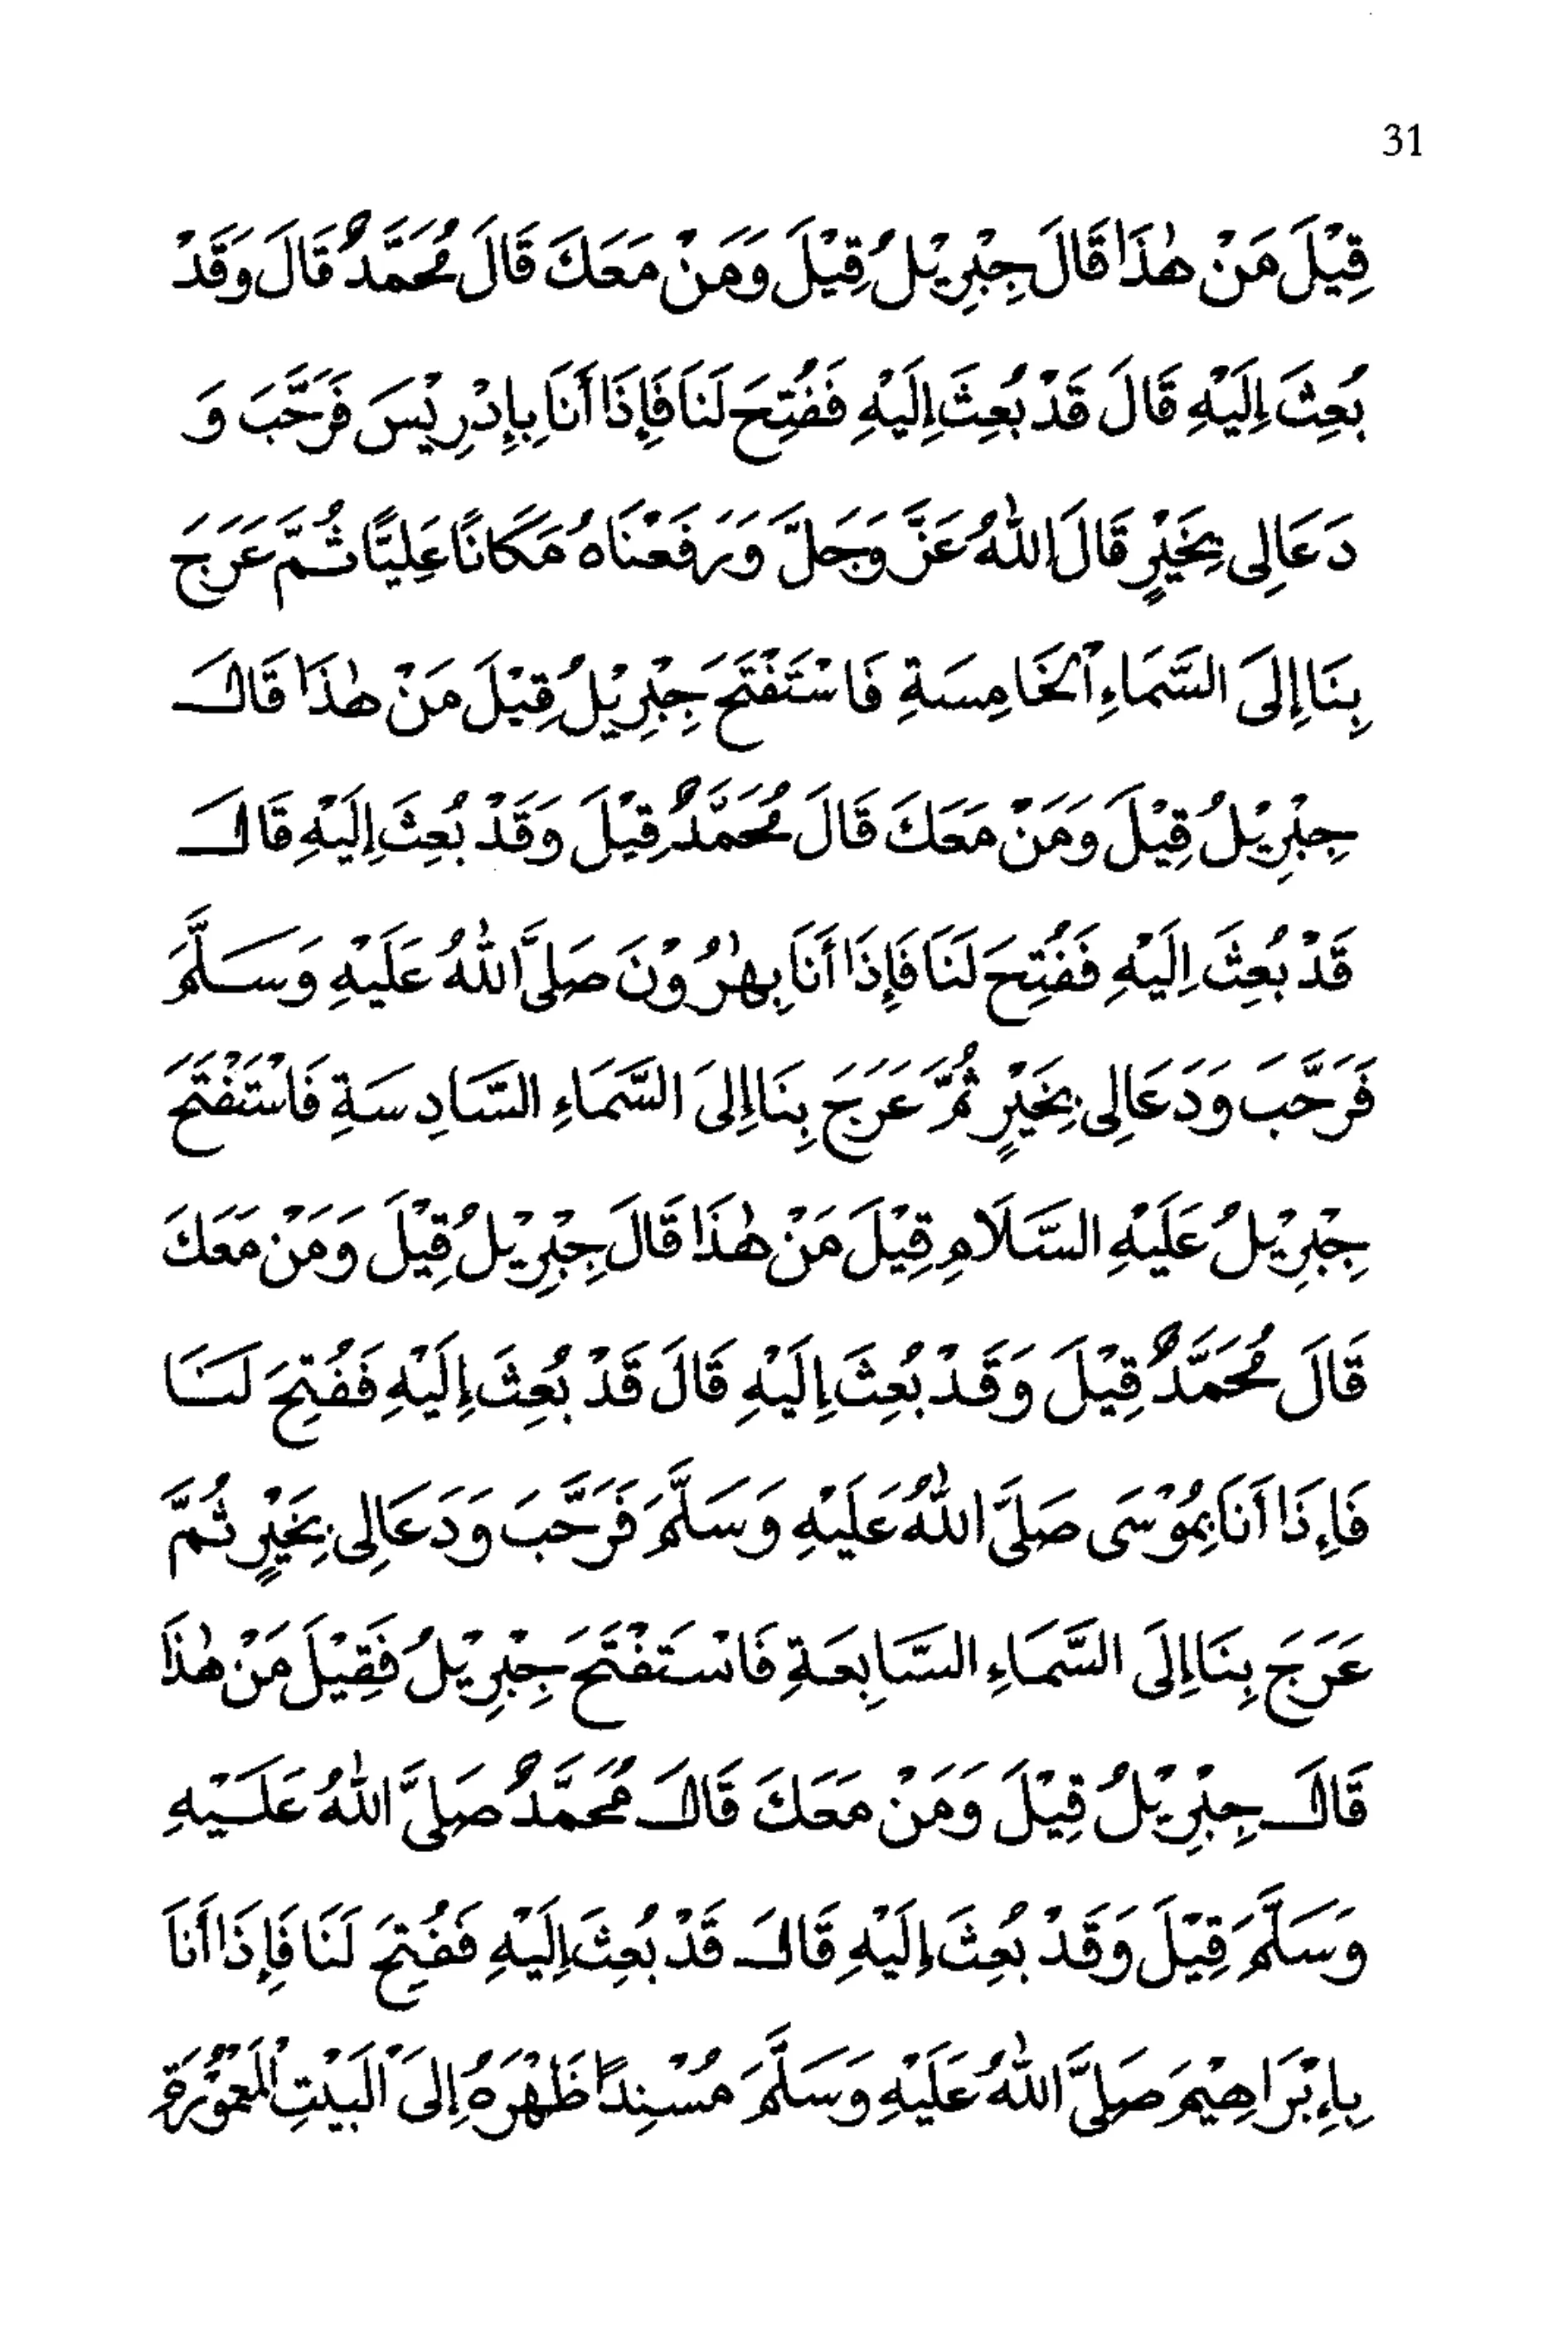 31
قِيْلَ مَنْ هٰذَا قَالَ جِبْرِيْلُ قِيْلَ وَمَنْ مَعَكَ قَالَ مُحَمَّدٌ قَالَ وَقَدْ
بُعِثَ إِلَيْهِ قَالَ قَدْ بُعِثَ إِلَيْهِ فَفُتِحَ لَنَا فَإِذَا أَنَا بِإِدْرِيْسَ فَرَحَّبَ وَ
دَعَالِى بِخَيْرٍ قَالَ اللهُ عَزَّ وَجَلَّ وَرَفَعْنَاهُ مَكَانًا عَلِيًّا ثُمَّ عَرَجَ
بِنَا إِلَى السَّمَاءِ الْخَامِسَةِ فَاسْتَفْتَحَ جِبْرِيْلُ قِيْلَ مَنْ هٰذَا قَالَ
جِبْرِيْلُ قِيْلَ وَمَنْ مَعَكَ قَالَ مُحَمَّدٌ قِيْلَ وَقَدْ بُعِثَ إِلَيْهِ قَالَ
قَدْ بُعِثَ إِلَيْهِ فَفُتِحَ لَنَا فَإِذَا أَنَا بِهٰرُوْنَ صَلَّى اللهُ عَلَيْهِ وَسَلَّمَ
فَرَحَّبَ وَدَعَالِى بِخَيْرٍ ثُمَّ عَرَجَ بِنَا إِلَى السَّمَاءِ السَّادِسَةِ فَاسْتَفْتَحَ
جِبْرِيْلُ عَلَيْهِ السَّلَامِ قِيْلَ مَنْ هٰذَا قَالَ جِبْرِيْلُ قِيْلَ وَمَنْ مَعَكَ
قَالَ مُحَمَّدٌ قِيْلَ وَقَدْ بُعِثَ إِلَيْهِ قَالَ قَدْ بُعِثَ إِلَيْهِ فَفُتِحَ لَنَا
فَإِذَا أَنَا بِمُوْسَى صَلَّى اللهُ عَلَيْهِ وَسَلَّمَ فَرَحَّبَ وَدَعَالِى بِخَيْرٍ ثُمَّ
عَرَجَ بِنَا إِلَى السَّمَاءِ السَّابِعَةِ فَاسْتَفْتَحَ جِبْرِيْلُ فَقِيْلَ مَنْ هٰذَا
قَالَ جِبْرِيْلُ قِيْلَ وَمَنْ مَعَكَ قَالَ مُحَمَّدٌ صَلَّى اللهُ عَلَيْهِ
وَسَلَّمَ قِيْلَ وَقَدْ بُعِثَ إِلَيْهِ قَالَ قَدْ بُعِثَ إِلَيْهِ فَفُتِحَ لَنَا فَإِذَا أَنَا
بِإِبْرَاهِيْمَ صَلَّى اللهُ عَلَيْهِ وَسَلَّمَ مُسْنِدًا ظَهْرَهُ إِلَى الْبَيْتِ الْمَعْمُوْرَةِ